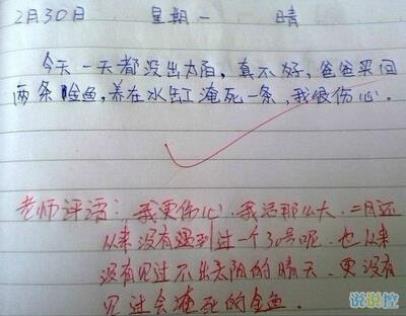 2月30日 星期一 晴
今天一天都没出太阳，真不好，爸爸买回
两条金鱼，养在水缸淹死一条，我很伤心。
老师评语：我更伤心，我活那么大，二月还
从来没有遇到过一个30号呢，也从来
没有见过不出太阳的晴天，更没有
见过会淹死的金鱼。
说说控